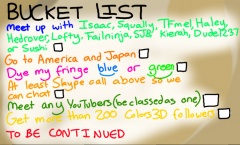 BUCKET LIST
Meet up with Isaac, Squally, TFmel, Haley,
Hedrover, Lofty, Failninja, SJB, Kierah, Dude1237
or Sushi
Go to America and Japan
Dye my fringe blue or green
At least Skype call above so we
can chat
Meet any YouTubers (be classed as one)
Get more than 200 Colors3D followers
TO BE CONTINUED